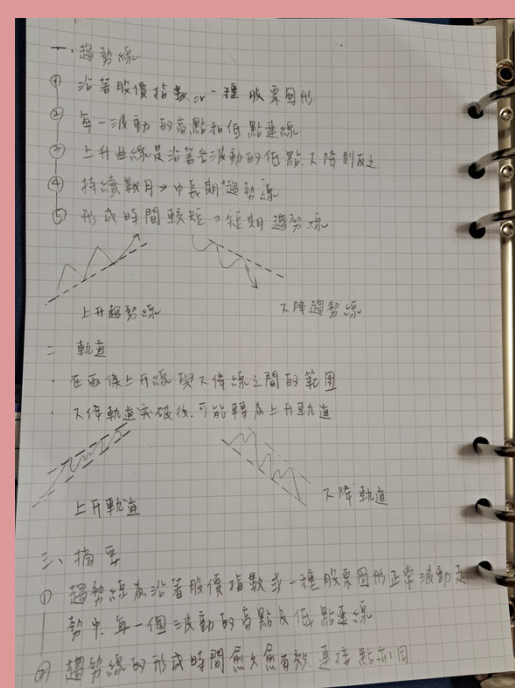 一、趨勢線
① 沿著股價指數or一種股票圖形
② 每一波動的高點和低點連線
③ 上升曲線是沿著各波動的低點,下降則反之
④ 持續數月→中長期趨勢線
⑤ 形成時間較短→短期趨勢線
上升趨勢線
下降趨勢線
二、軌道
・在兩條上升線與下降線之間的範圍
・下降軌道突破後,可能轉為上升軌道
上升軌道
下降軌道
三、摘要
① 趨勢線在沿著股價指數或一種股票圖形正常波動趨
勢中每一個波動的高點及低點連線
② 趨勢線的形成時間愈久愈有效 連接點